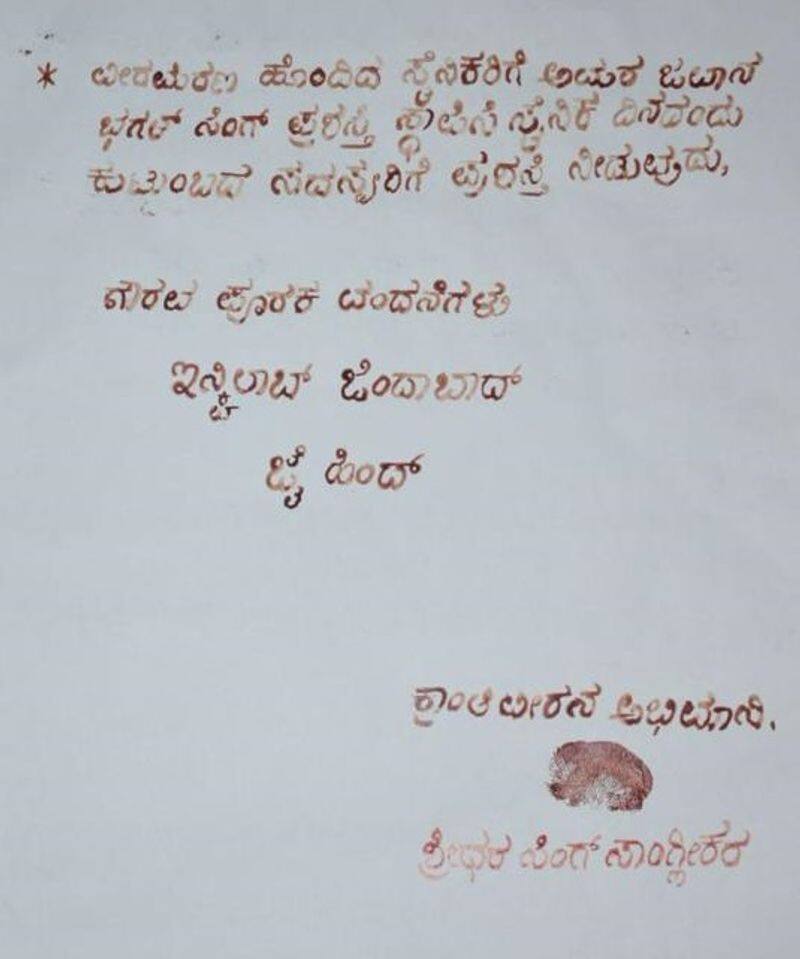 * ವೀರಮರಣ ಹೊಂದಿದ ಸೈನಿಕರಿಗೆ ಅಮರ ಜವಾನ
ಭಗತ್ ಸಿಂಗ್ ಪ್ರಶಸ್ತಿ ಸ್ಥಾಪಿಸಿ ಸೈನಿಕ ದಿನದಂದು
ಕುಟುಂಬದ ಸದಸ್ಯರಿಗೆ ಪ್ರಶಸ್ತಿ ನೀಡುವುದು,
ಗೌರವ ಪೂರಕ ವಂದನೆಗಳು
ಇನ್ಕ್ವಿಲಾಬ್ ಜಿಂದಾಬಾದ್
ಜೈ ಹಿಂದ್
ಕ್ರಾಂತಿವೀರನ ಅಭಿಮಾನಿ.
ಶ್ರೀಧರ ಸಿಂಗ್ ಸಾಂಗ್ಲೀಕರ